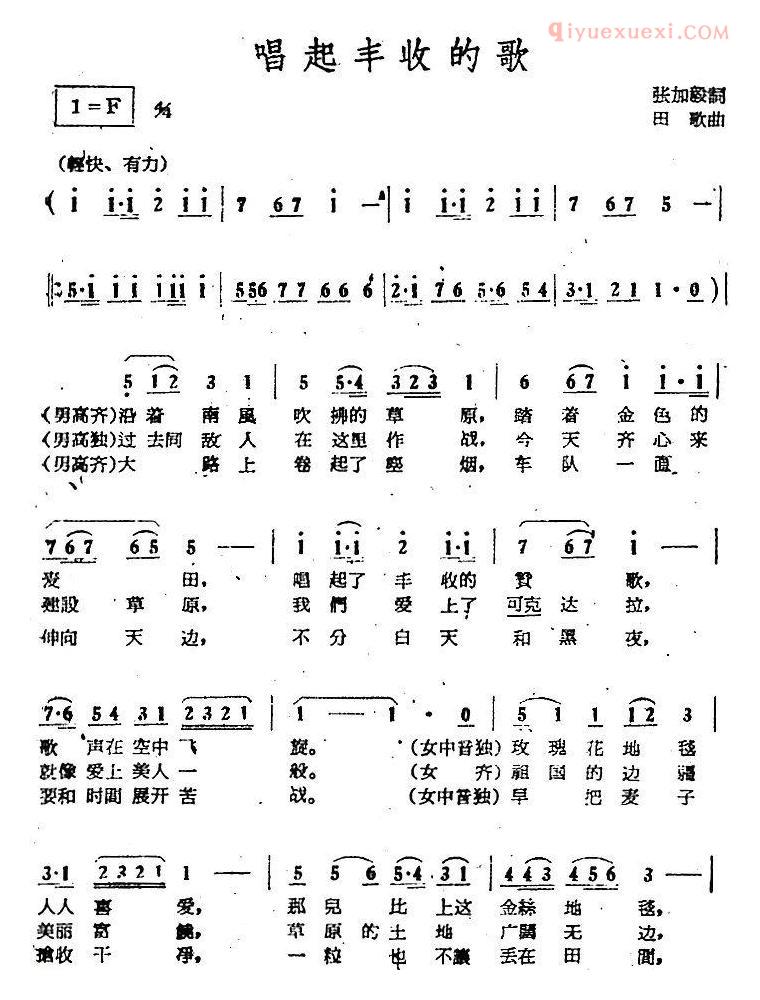 qiyuexuexi.com
唱起丰收的歌
1=F 4/4
张加毅詞
田 歌曲
(輕快、有力)
( i i·i 2 i i | 7 6 7 i — | i i·i 2 i i | 7 6 7 5 — |
5·i i i i i i i i | 5 5 6 7 7 6 6 6 6 | 2·i 7 6 5·6 5 4 | 3·1 2 1 1·0 ) |
5 1 2 3 1 | 5 5·4 3 2 3 1 | 6 6 7 i i·i |
(男高齐)沿着 南風 吹拂的草 原, 踏着 金色的
(男高独)过去同 敌人 在这里作 战, 今天 齐心来
(男高齐)大 路上 卷起了塵 烟, 车队 一面
7 6 7 6 6 5 5 — — | i i·i 2 i·i | 7 6 7 i — |
麦 田, 唱起了丰收的 贊 歌,
建設 草原, 我們 爱上了 可克达拉,
伸向 天边, 不分 白天 和黑夜,
7·6 5 4 3 1 2 3 2 1 | 1 — — | 1 · 0 | 5 1 1 1 2 3 |
歌 声在 空中 飞 旋。 (女中音独)玫瑰花地毯
就像 爱上 美人 一 般。 (女 齐)祖国的边疆
要和 时間 展开 苦 战。 (女中音独)早 把麦子
3·1 2 3 2 1 1 — | 5 5 6 5·4 3 1 | 4 4 3 4 5 6 3 — |
人人 喜 爱, 那兒 比上这 金絲 地 毯,
美丽 富 饒, 草原的土地 广闊 无 边,
搶收 干 凈, 一粒 也 不讓 丢在 田 間,